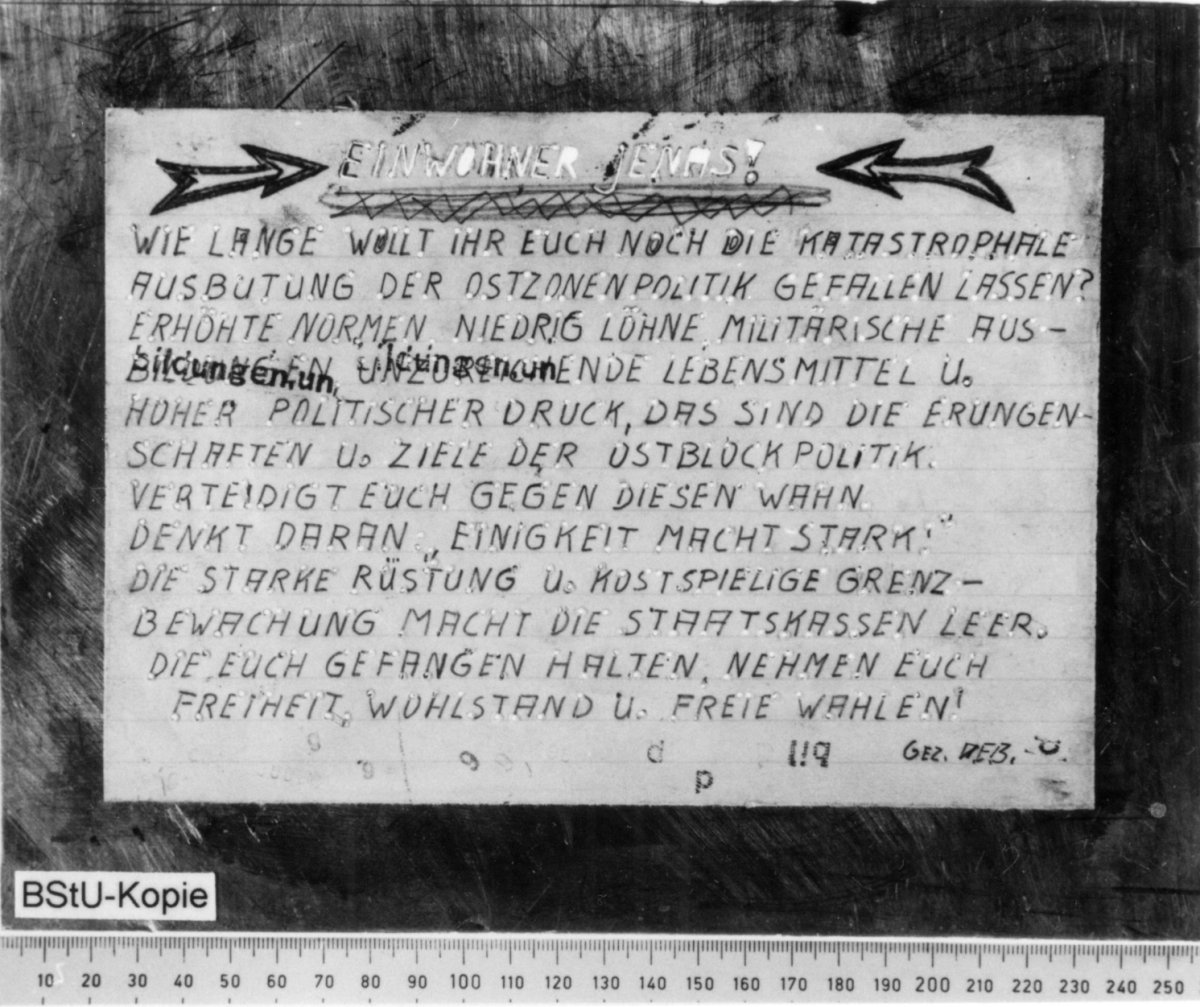 EINWOHNER JENAS!
WIE LANGE WOLLT IHR EUCH NOCH DIE KATASTROPHALE
AUSBUTUNG DER OSTZONENPOLITIK GEFALLEN LASSEN?
ERHÖHTE NORMEN, NIEDRIG LÖHNE, MILITÄRISCHE AUS-
bildungen,un ildungen,un ENDE LEBENSMITTEL U.
HOHER POLITISCHER DRUCK, DAS SIND DIE ERUNGEN-
SCHAFTEN U. ZIELE DER OSTBLOCKPOLITIK.
VERTEIDIGT EUCH GEGEN DIESEN WAHN.
DENKT DARAN: „EINIGKEIT MACHT STARK!"
DIE STARKE RÜSTUNG U. KOSTSPIELIGE GRENZ-
BEWACHUNG MACHT DIE STAATSKASSEN LEER.
DIE EUCH GEFANGEN HALTEN, NEHMEN EUCH
FREIHEIT, WOHLSTAND U. FREIE WAHLEN!
GEZ.
BStU-Kopie
10 20 30 40 50 60 70 80 90 100 110 120 130 140 150 160 170 180 190 200 210 220 230 240 250